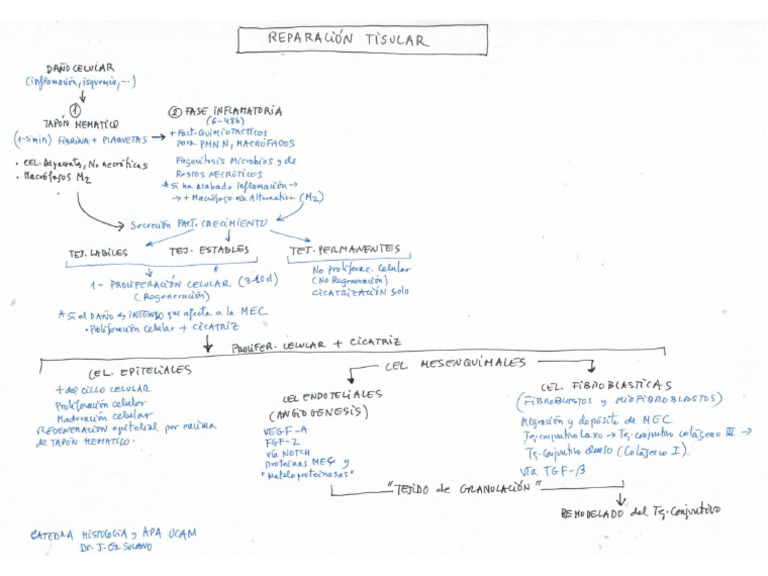 REPARACIÓN TISULAR
DAÑO CELULAR
(inflamación, isquemia, ...)
①
TAPÓN HEMATICO
(1-5min) FIBRINA + PLAQUETAS
• CEL. Adyacentes, No necróticas
• Macrófagos M2
② FASE INFLAMATORIA
(6-48h)
+ FACT. QUIMIOTACTICOS
para PMN N, MACRÓFAGOS
Fagocitosis Microbios y de
Restos NECRÓTICOS
* Si ha acabado inflamación →
→ + Macrófago vía Alternativa (M2)
Secreción FACT. CRECIMIENTO
TEJ. LABILES
TEJ. ESTABLES
TET. PERMANENTES
1- PROLIFERACIÓN CELULAR (3-10d)
(Regeneración)
No Proliferac. Celular
(No Regeneración)
CICATRIZACIÓN SOLO
* Si el DAÑO es INTENSO que afecta a la MEC
• Proliferación Celular + CICATRIZ
PROLIFER. CELULAR + CICATRIZ
CEL. EPITELIALES
+ del CICLO CELULAR
Proliferación celular
Maduración celular
REGENERACIÓN epitelial por encima
de TAPÓN HEMATICO.
CEL MESENQUIMALES
CEL ENDOTELIALES
(ANGIOGENESIS)
VEGF-A
FGF-2
vía NOTCH
Proteínas MEC y
"Metaloproteinasas"
CEL. FIBROBLASTICAS
(FIBROBLASTOS y MIOFIBROBLASTOS)
Migración y depósito de MEC
Tej. conjuntivo Laxo → Tej. conjuntivo colágeno III →
Tej. conjuntivo denso (Colágeno I).
vía TGF-β
"TEJIDO de GRANULACIÓN"
REMODELADO del Tej. Conjuntivo
CATEDRA HISTOLOGIA y APA UCAM
Dr. J. Gª SOLANO